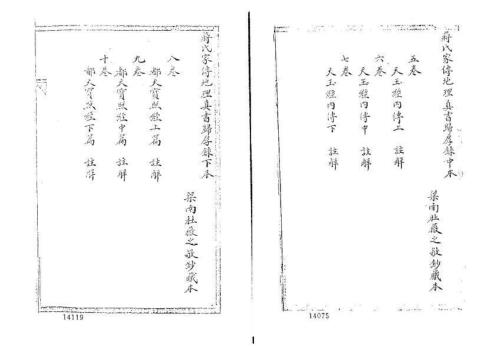 蔣氏家傳地理真書歸厚錄中本
五卷
天玉經內傳上 註解
六卷
天玉經內傳中 註解
七卷
天玉經內傳下 註解
14075
蔣氏家傳地理真書歸厚錄下本
八卷
都天寶照經上篇 註解
九卷
都天寶照經中篇 註解
十卷
都天寶照經下篇 註解
14119